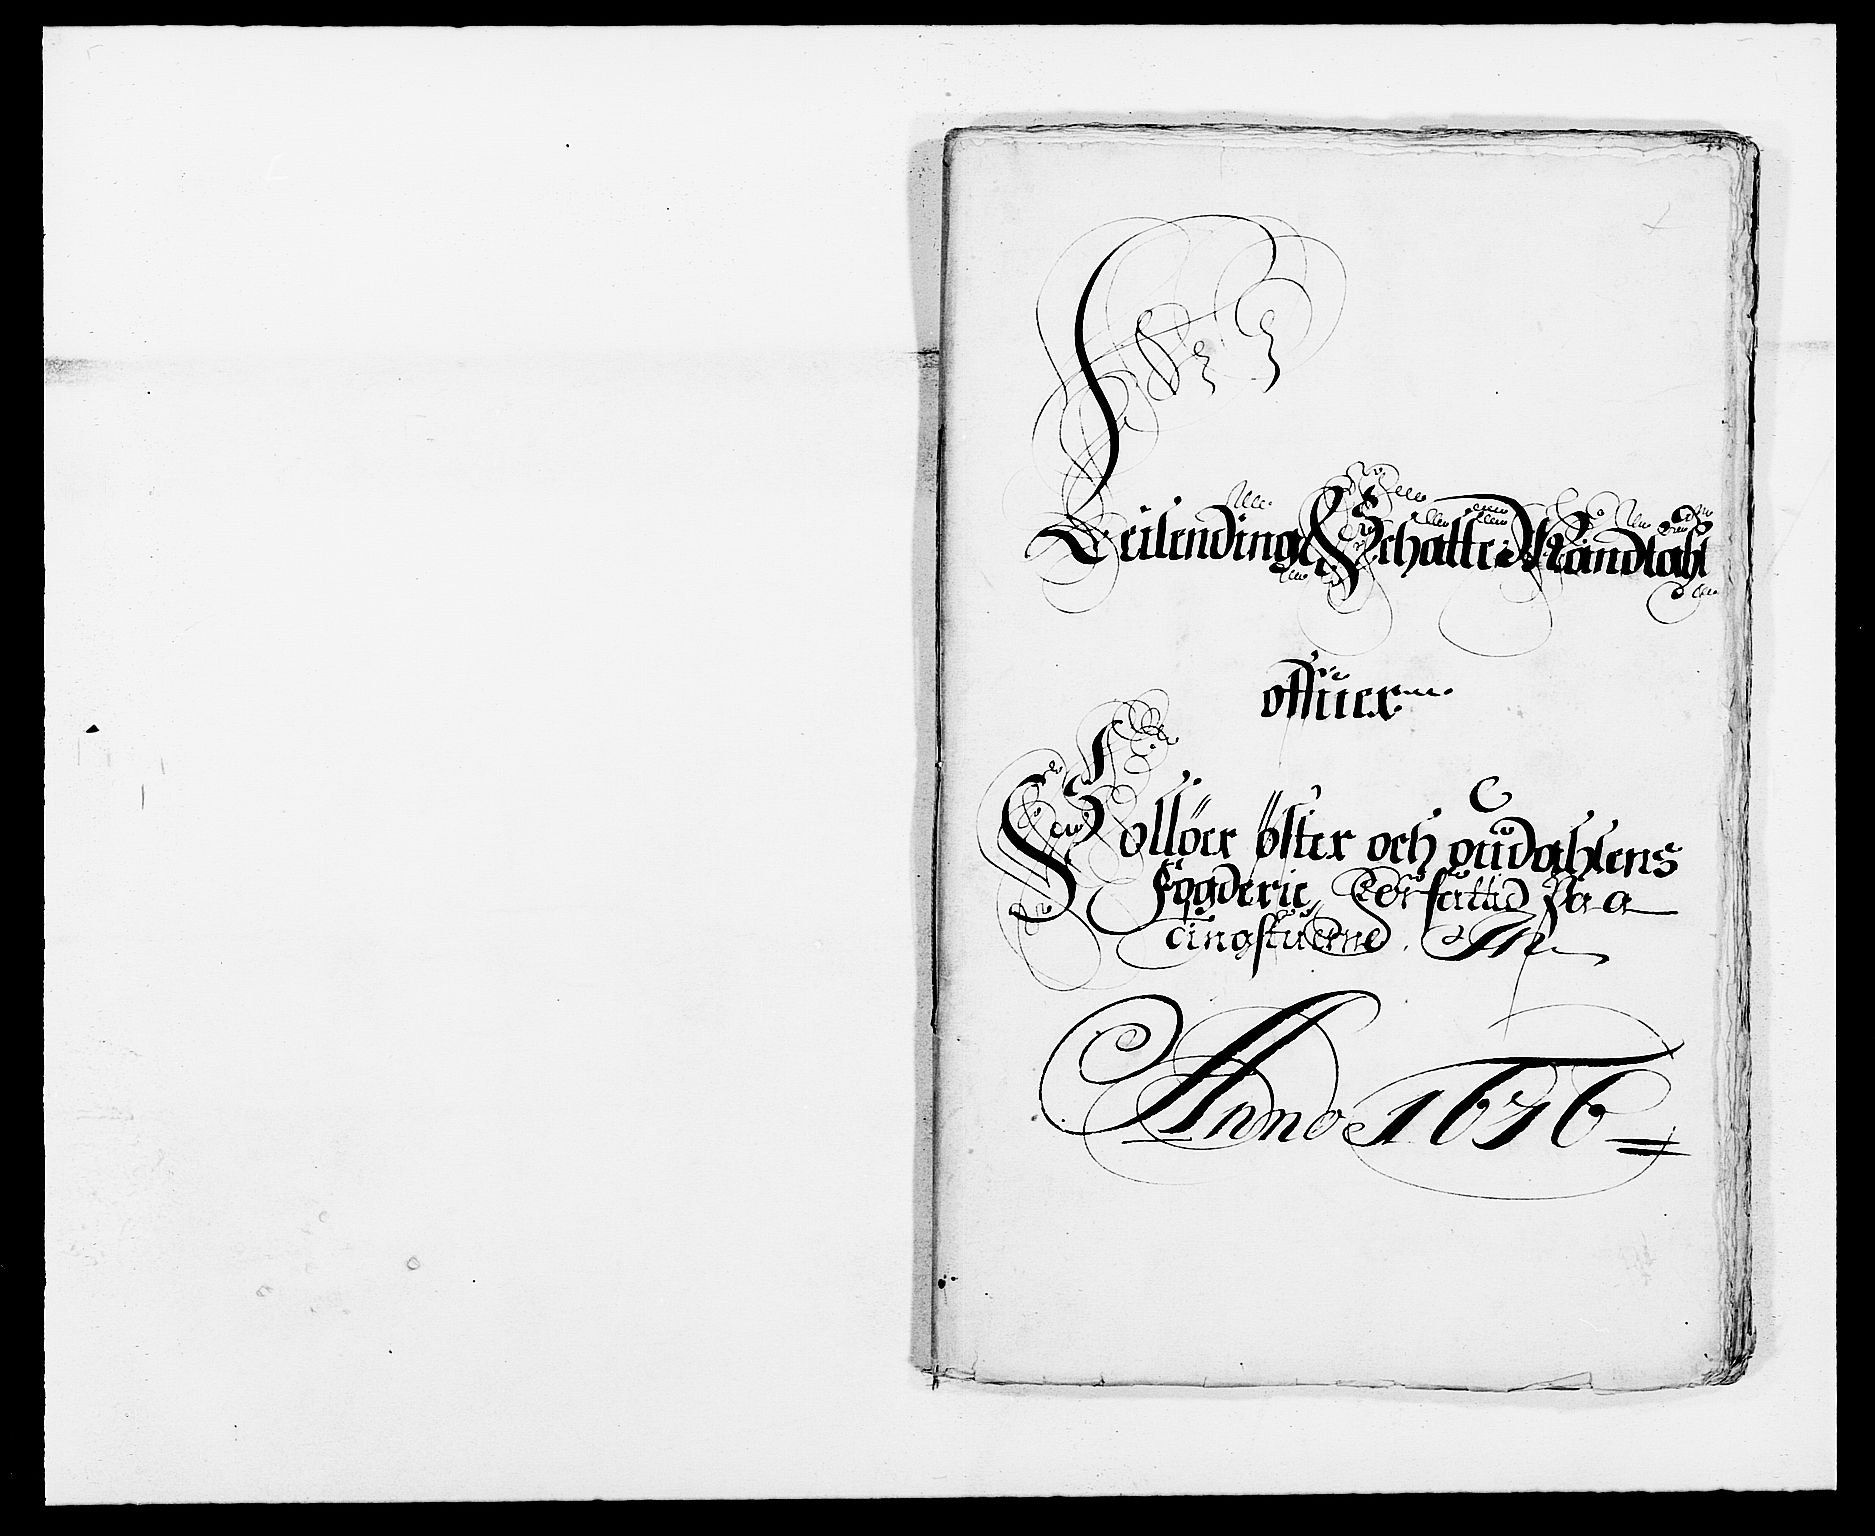 Leilending Schatte Mandtahl
offuer
Solløer øster och oudahlens
fogderie, Forfattid Paa
tingstuerne.
Anno 1676